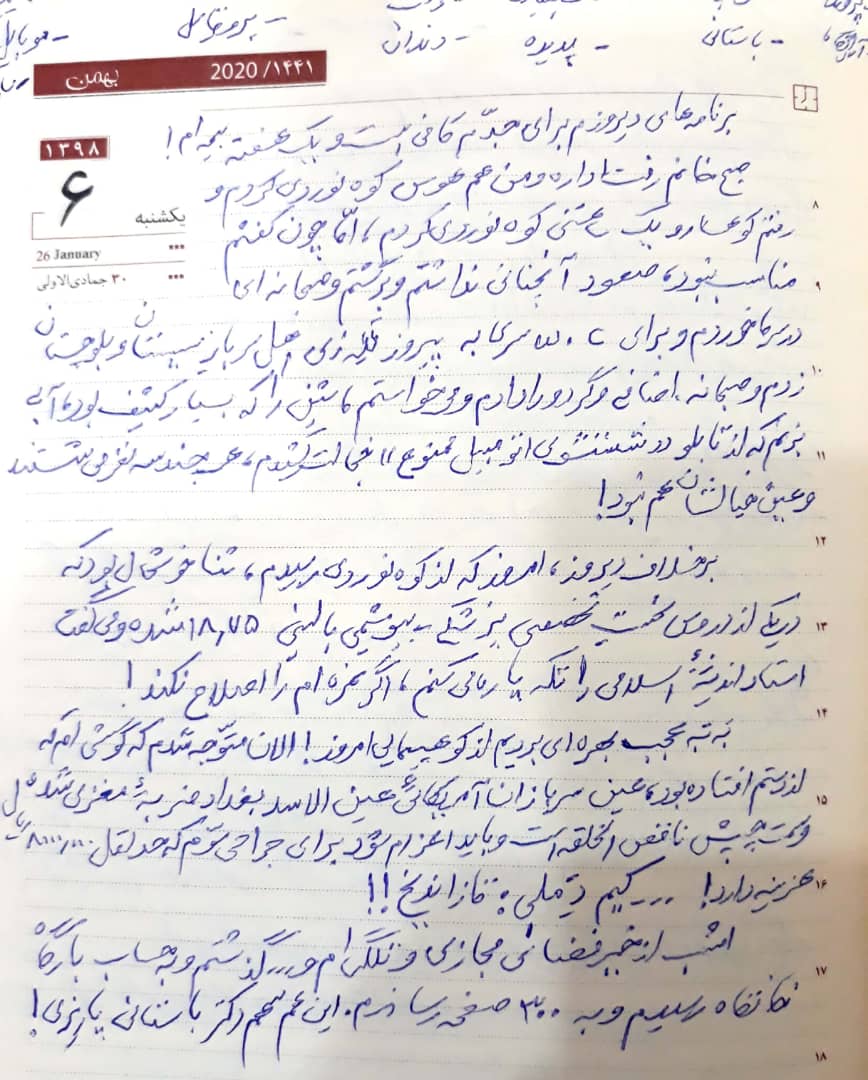 - پروفایل
- دندان
- پدیده
- باستانی
- موبایل
بهمن
2020/۱۴۴۱
۱۳۹۸
۶
یکشنبه
26 January
۳۰ جمادی‌الاولی
برنامه‌های دیروزم برای جدّم کافی است و یک هفته بیمه‌ام!
صبح خانم رفت اداره و من هم هوس کوه نوردی کردم و
۸
رفتم کوهسار و یک ساعتی کوه نوردی کردم، امّا چون کفشم
مناسب نبود، صعود آنچنانی نداشتم و برگشتم و صبحانه‌ای
۹
در سرما خوردم و برای سری به پیروز اهل سرباز سیستان و بلوچستان
۱۰
زدم و صبحانه اضافی و گردو را دادم و می‌خواستم ماشین را که بسیار کثیف بود، آبی
بزنم که از تابلو «شستشوی اتومبیل ممنوع» خجالت کشیدم، هر چند سه نفر می‌شستند
۱۱
و عین خیالشان هم نبود!
۱۲
برخلاف دیروز، امروز که از کوه نوردی رسیدم، ثنا خوشحال بود که
در یکی از دروس سخت تخصصی پزشکی - بیوشیمی بالینی ۱۸,۷۵ شده و می‌گفت
۱۳
استاد اندیشهٔ اسلامی را تکه پاره می‌کنم، اگر نمره‌ام را اصلاح نکند!
۱۴
به به عجب بهره‌ای بردیم از کوهپیمایی امروز! الان متوجّه شدم که گوشی‌ام که
از دستم افتاده بود، عین سربازان آمریکائیِ عین الاسد بغداد ضربهٔ مغزی شده
۱۵
و سمت چپش ناقص الخلقه است و باید اعزام شود برای جراحی ترمیم که حداقل ۸۰۰۰,۰۰۰ ریال
هزینه دارد! .... کیم
۱۶
امشب از خیر فضای مجازی و تلگرام و ... گذشتم و به حساب بارگاه
خانقاه رسیدم و به ۳۰۰ صفحه رساندم. این هم سهم دکتر باستانی پاریزی!
۱۷
۱۸